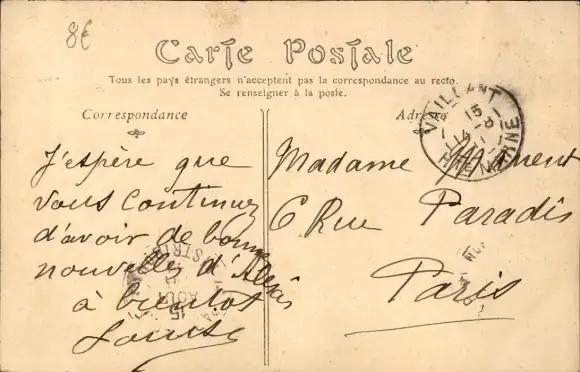 8€
Carte Postale
Tous les pays étrangers n'acceptent pas la correspondance au recto.
Se renseigner à la poste.
Correspondance
Adresse
VAILLANT
15 - 8
14
HTE MARNE
J'espère que
vous continuez
d'avoir de bonnes
nouvelles d'Alexis
à bientôt
Louise
Madame
6 Rue Paradis
Paris
15
AOUT